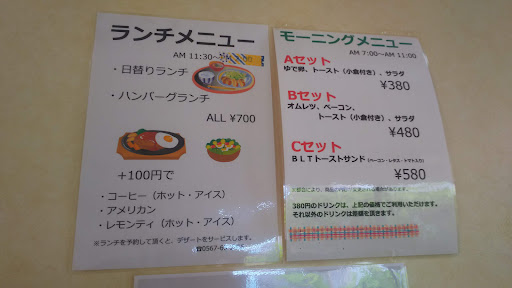 ランチメニュー
AM 11:30～
・日替りランチ
・ハンバーグランチ
ALL ¥700
+100円で
・コーヒー（ホット・アイス）
・アメリカン
・レモンティ（ホット・アイス）
※ランチを予約して頂くと、デザートをサービスします。
☎0567-6
モーニングメニュー
AM 7:00～AM 11:00
Aセット
ゆで卵、トースト（小倉付き）、サラダ
¥380
Bセット
オムレツ、ベーコン、
トースト（小倉付き）、サラダ
¥480
Cセット
BLTトーストサンド（ベーコン・レタス・トマト入り）
¥580
380円のドリンクは、上記の価格でご利用いただけます。
それ以外のドリンクは差額を頂きます。